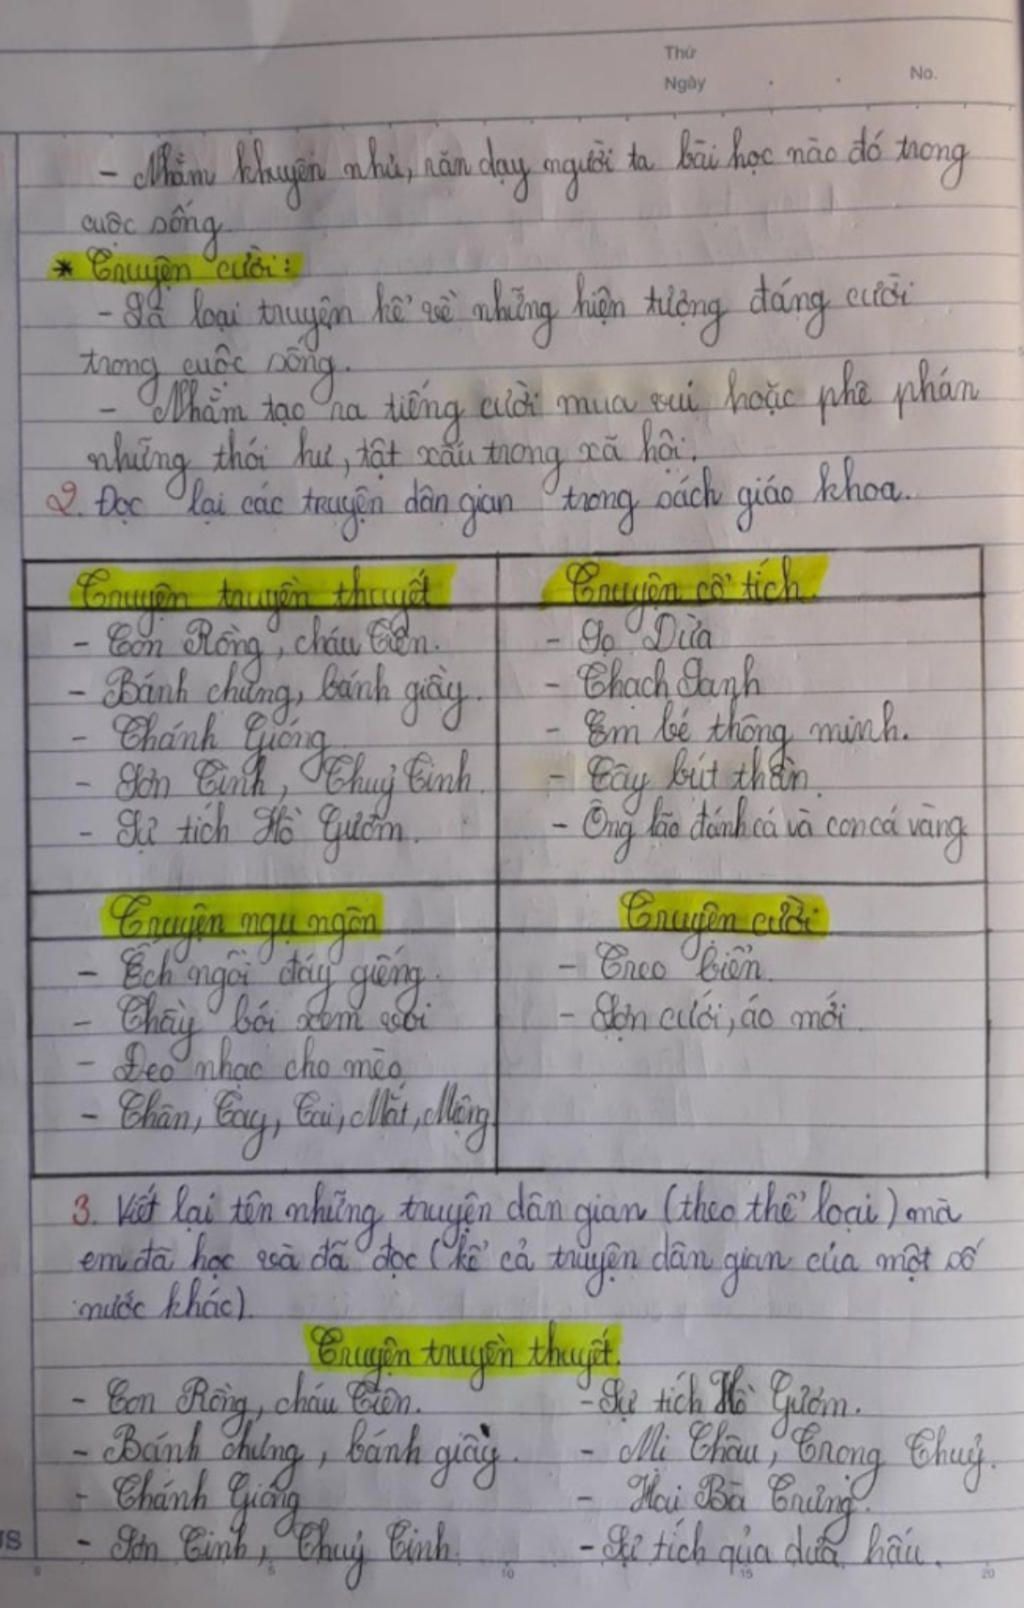 Thứ
Ngày . . No.
- Nhằm khuyên nhủ, răn dạy người ta bài học nào đó trong
cuộc sống
* Truyện cười:
- Là loại truyện kể về những hiện tượng đáng cười
trong cuộc sống.
- Nhằm tạo ra tiếng cười mua vui hoặc phê phán
những thói hư, tật xấu trong xã hội.
2. Đọc lại các truyện dân gian trong sách giáo khoa.
Truyện truyền thuyết
- Con Rồng, cháu Tiên.
- Bánh chưng, bánh giầy.
- Thánh Gióng
- Sơn Tinh, Thuỷ Tinh.
- Sự tích Hồ Gươm.
Truyện cổ tích.
- Sọ Dừa
- Thạch Sanh
- Em bé thông minh.
- Cây bút thần.
- Ông lão đánh cá và con cá vàng
Truyện ngụ ngôn
- Ếch ngồi đáy giếng.
- Thầy bói xem voi
- Đeo nhạc cho mèo
- Chân, Tay, Tai, Mắt, Miệng
Truyện cười
- Treo biển.
- Lợn cưới, áo mới.
3. Viết lại tên những truyện dân gian (theo thể loại) mà
em đã học và đã đọc (kể cả truyện dân gian của một số
nước khác).
Truyện truyền thuyết.
- Con Rồng, cháu Tiên.
- Bánh chưng, bánh giầy.
- Thánh Gióng
- Sơn Tinh, Thuỷ Tinh.
- Sự tích Hồ Gươm.
- Mị Châu, Trọng Thuỷ.
- Hai Bà Trưng.
- Sự tích qủa dưa hấu.
0 5 10 15 20